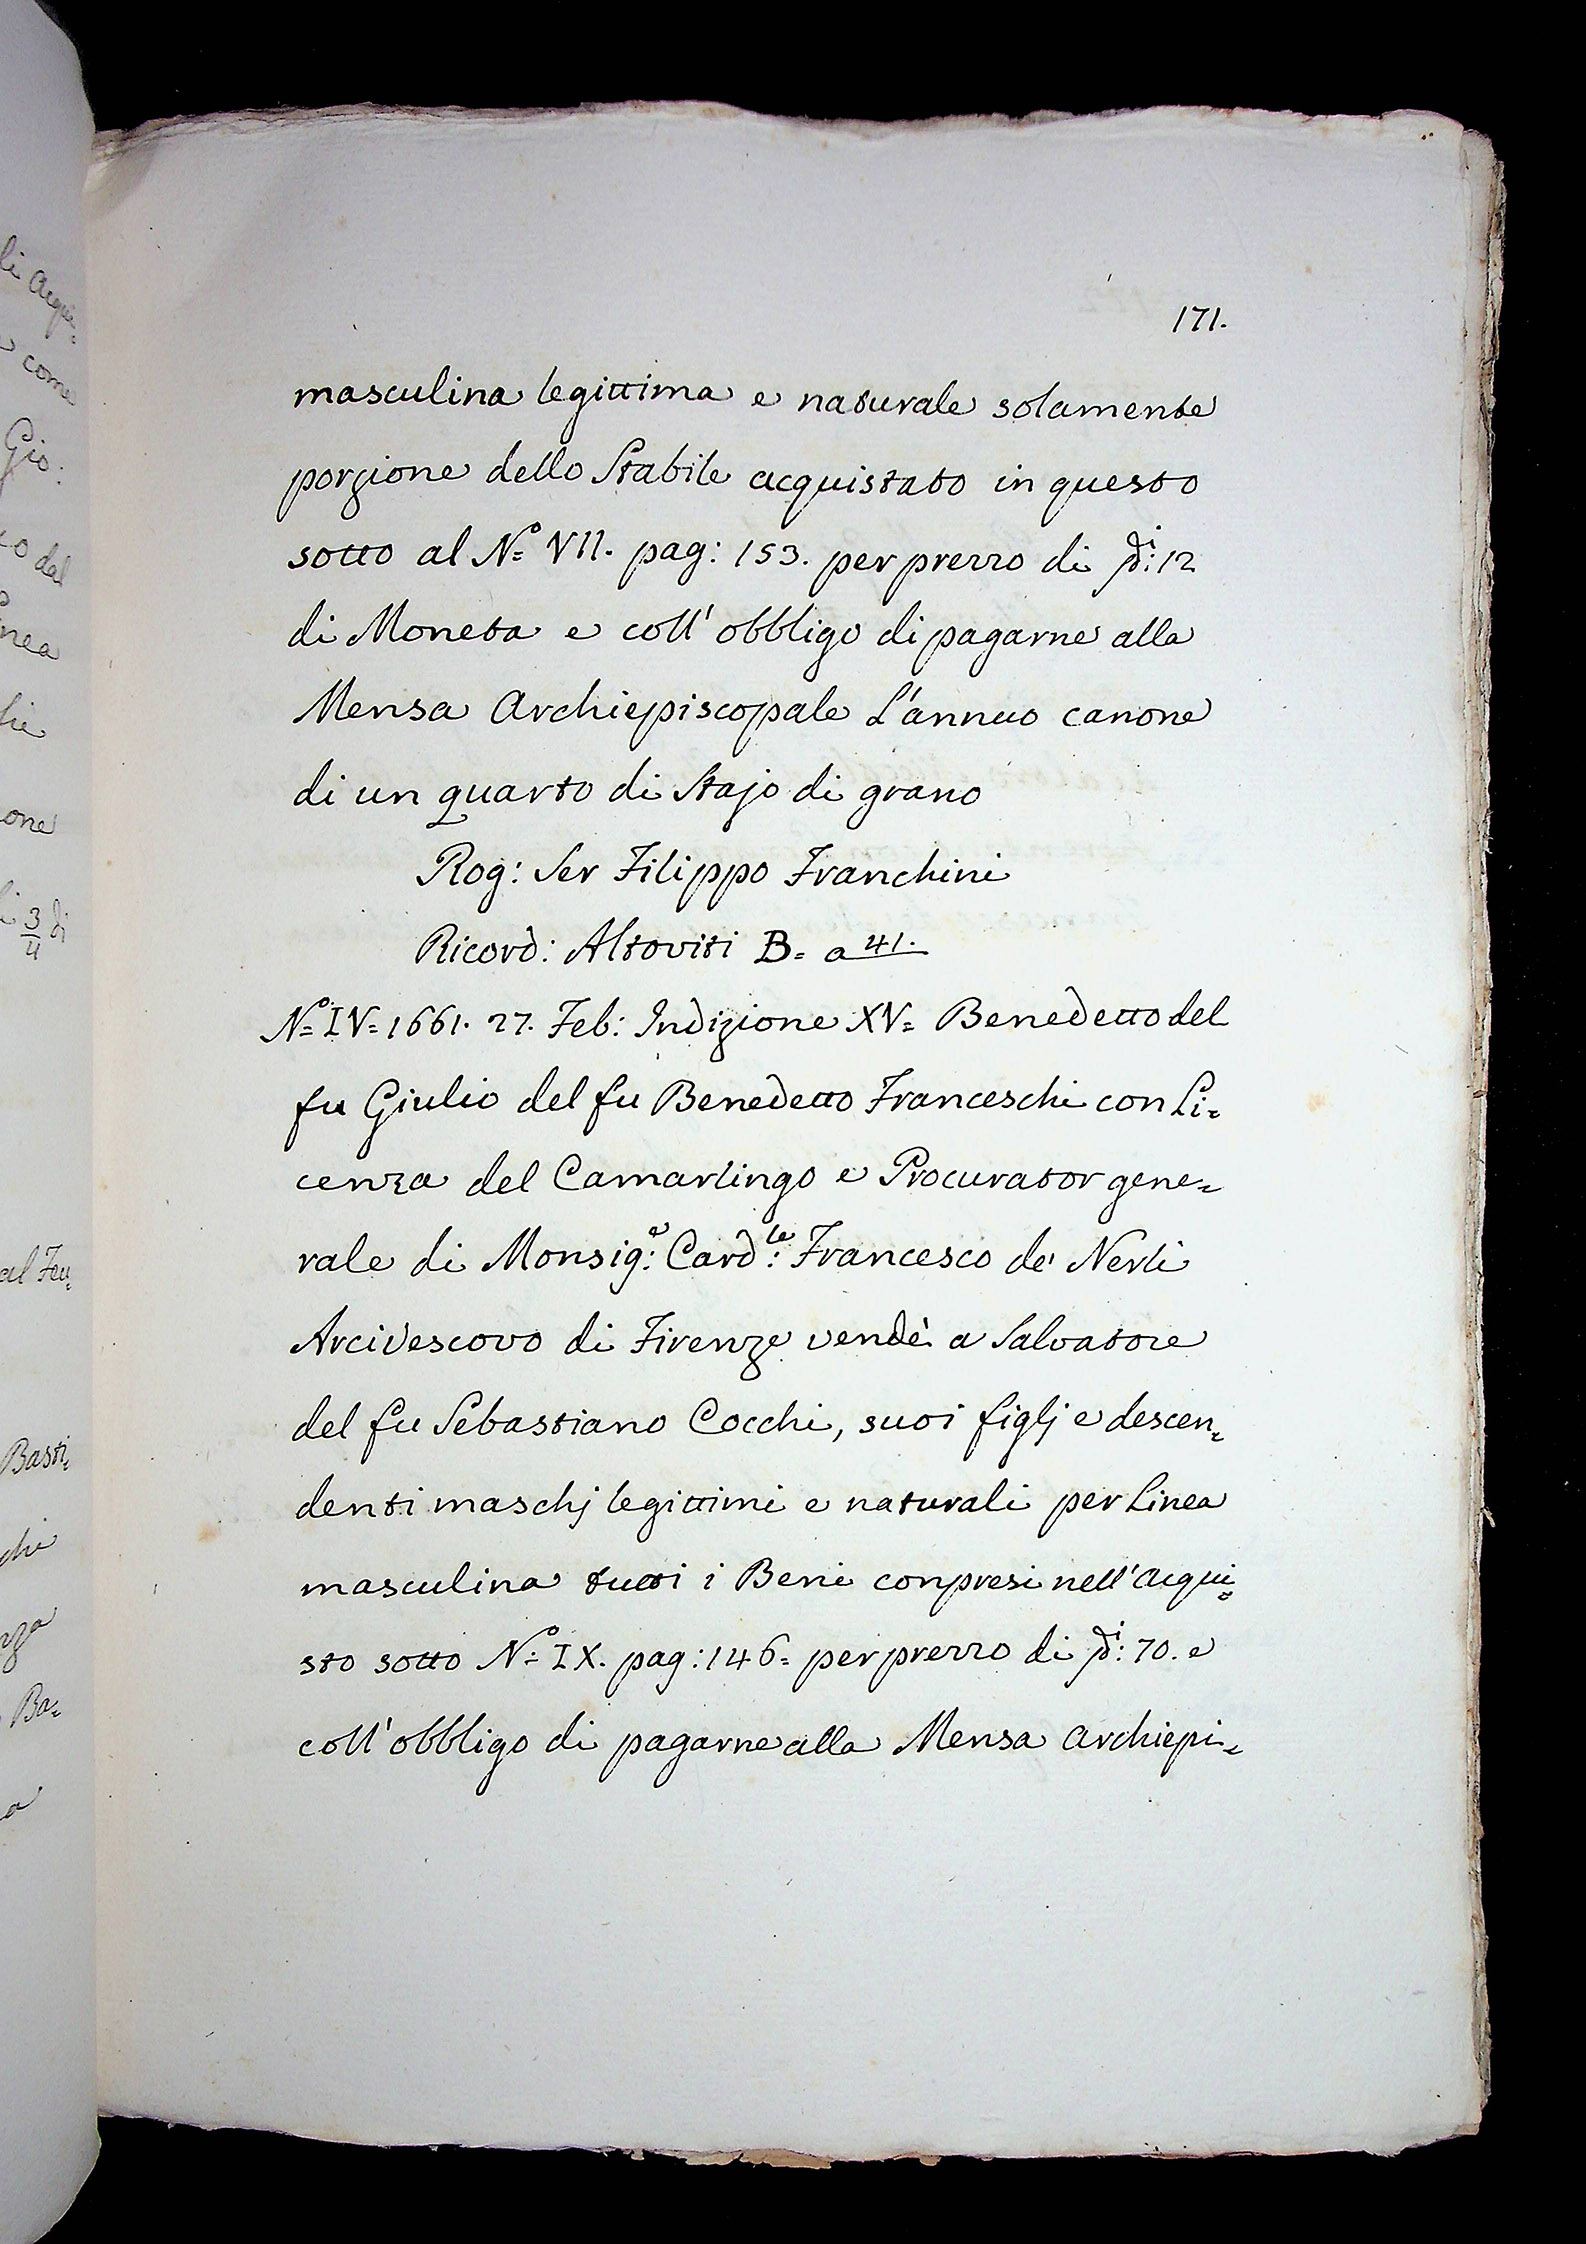 171.
masculina legittima e naturale solamente
porzione dello Stabile acquistato in questo
sotto al N.º VII. pag: 153. per prezzo di di: 12
di Moneta e coll' obbligo di pagarne alla
Mensa Archiepiscopale L'annuo canone
di un quarto di Stajo di grano
Rog: Ser Filippo Franchini
Ricord: Altoviti B= a 41.
Nº= IV= 1661. 27. Feb: Indizione XV= Benedetto del
fu Giulio del fu Benedetto Franceschi con Li=
cenza del Camarlingo e Procurator gene=
rale di Monsig:e Card:le Francesco de' Nerli
Arcivescovo di Firenze vendè a Salvatore
del fu Sebastiano Cocchi, suoi figlj e descen=
denti maschj legittimi e naturali per Linea
masculina tutti i Beni conpresi nell' Acqui=
sto sotto Nº= IX. pag: 146= per prezzo di di: 70. e
coll' obbligo di pagarne alla Mensa Archiepi=
li Acqui=
come
Gio:
co del
nea
lie
one
li 3/4 di
al Feu=
Basti=
chi
nza
Ba=